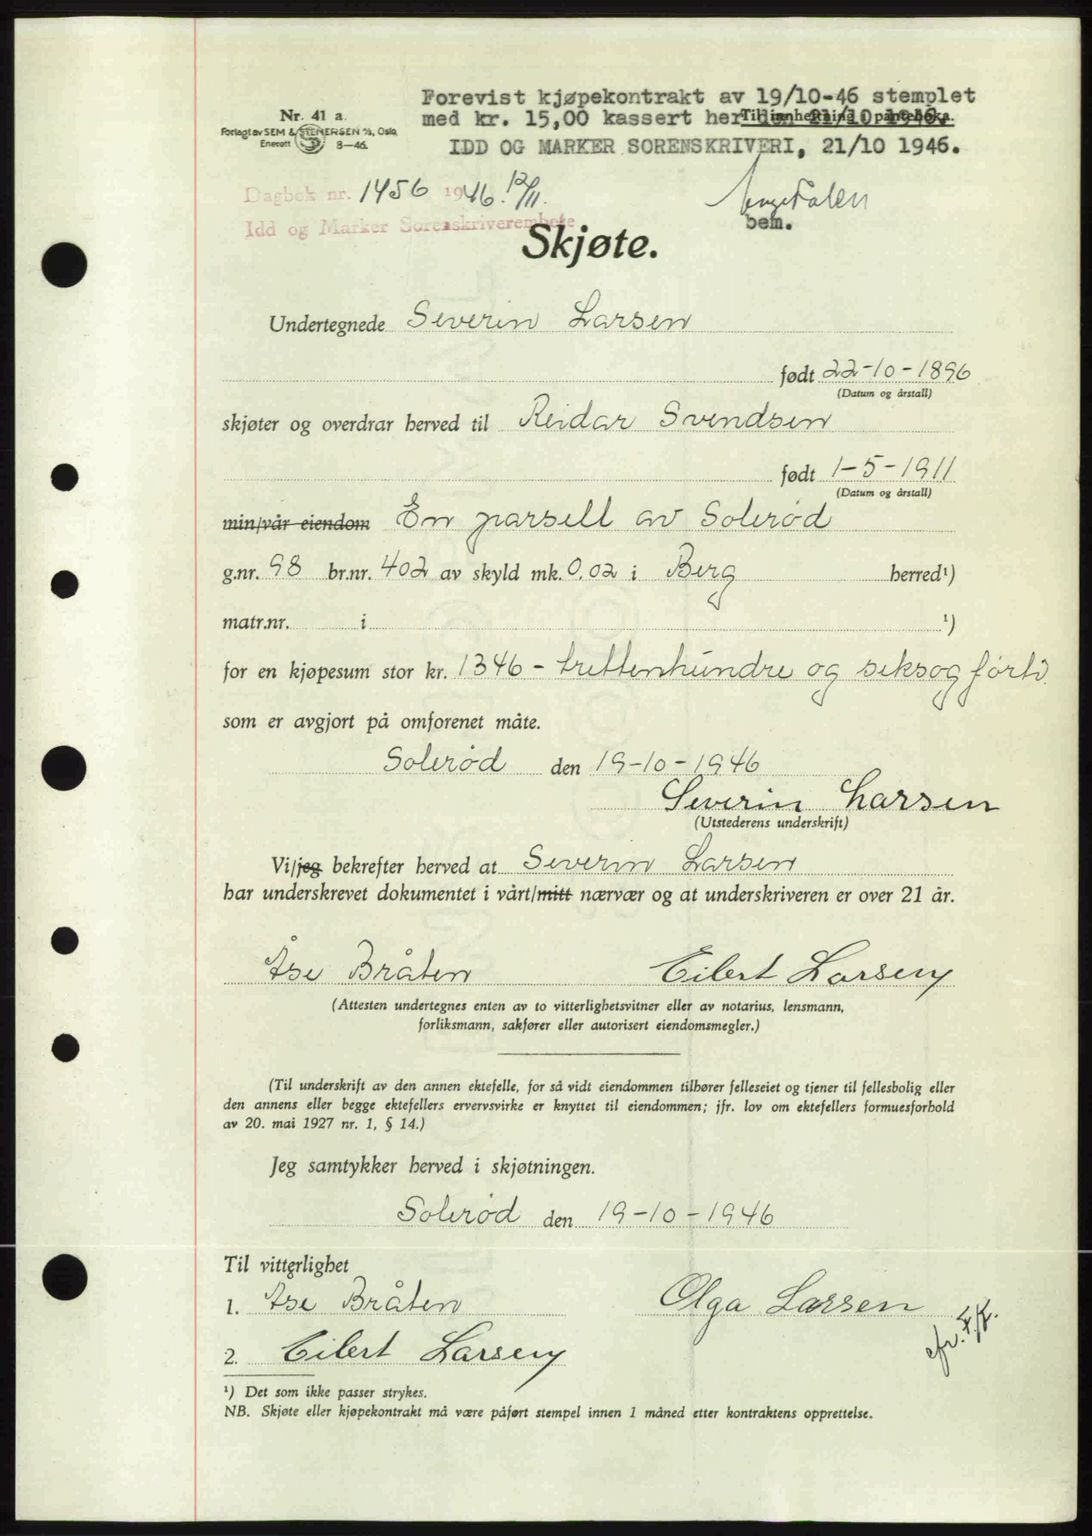 Nr. 41 a.
Forlagt av SEM & STENERSEN A/S, Oslo
Enerett 8-46.
Forevist kjøpekontrakt av 19/10-46 stemplet
med kr. 15,00 kassert her den 21/10 1946.
Til innheftning i panteboka.
IDD OG MARKER SORENSKRIVERI, 21/10 1946.
Dagbok nr. 1456 1946. 12/11.
Idd og Marker Sorenskriverembete
bem.
Skjøte.
Undertegnede Severin Larsen
født 22-10-1896
(Datum og årstall)
skjøter og overdrar herved til Reidar Svendsen
født 1-5-1911
(Datum og årstall)
min/vår eiendom En parsell av Solerød
g.nr. 98 br.nr. 402 av skyld mk. 0.02 i Berg herred¹)
matr.nr. i ¹)
for en kjøpesum stor kr. 1346 - trettenhundre og seksogførti
som er avgjort på omforenet måte.
Solerød den 19-10-1946
Severin Larsen
(Utstederens underskrift)
Vi/jeg bekrefter herved at Severin Larsen
har underskrevet dokumentet i vårt/mitt nærvær og at underskriveren er over 21 år.
Åse Bråten Eilert Larsen
(Attesten undertegnes enten av to vitterlighetsvitner eller av notarius, lensmann,
forliksmann, sakfører eller autorisert eiendomsmegler.)
(Til underskrift av den annen ektefelle, for så vidt eiendommen tilhører felleseiet og tjener til fellesbolig eller
den annens eller begge ektefellers ervervsvirke er knyttet til eiendommen; jfr. lov om ektefellers formuesforhold
av 20. mai 1927 nr. 1, § 14.)
Jeg samtykker herved i skjøtningen.
Solerød den 19-10-1946
Til vitterlighet
1. Åse Bråten Olga Larsen
2. Eilert Larsen
¹) Det som ikke passer strykes.
NB. Skjøte eller kjøpekontrakt må være påført stempel innen 1 måned etter kontraktens opprettelse.